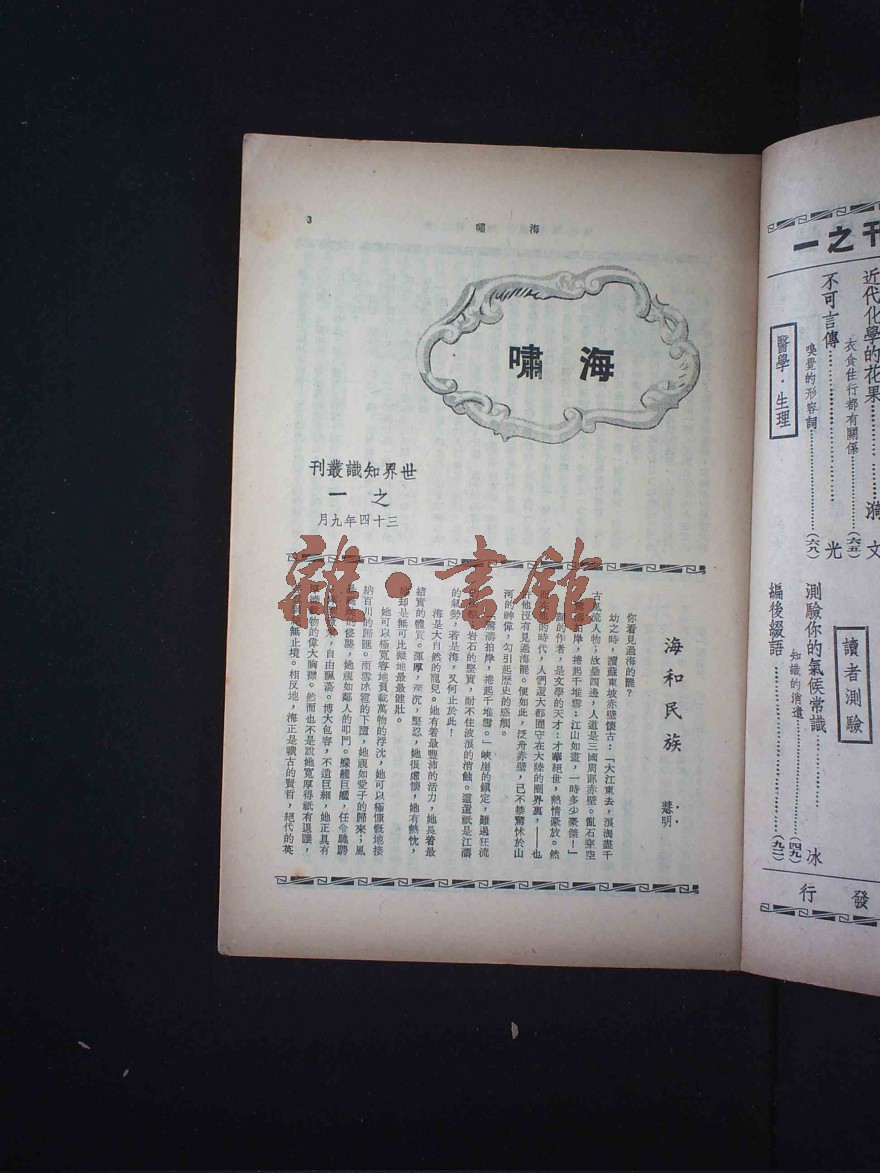 3
嘯　海
海　嘯
世界知識叢刊
之一
三十四年九月
海和民族
慧明
你看見過海的罷？
幼之時，讀蘇東坡赤壁懷古：「大江東去，浪淘盡千
古風流人物；故壘西邊，人道是三國周郎赤壁。亂石穿空
驚濤拍岸，捲起千堆雪：江山如畫，一時多少豪傑！」
的作者，是文學的天才：才華絕世，熱情豪放。然
的時代，人們還大都囿守在大陸的圈界裏，——也
許他沒有見過海罷。便如此，泛舟赤壁，已不禁驚怵於山
河的神偉，勾引起歷史的感觸。
「驚濤拍岸，捲起千堆雪。」峽崖的鎮定，難遏狂流
岩石的堅實，耐不住波浪的消蝕。這還祇是江濤
的氣勢，若是海，又何止於此！
海是大自然的寵兒。她有着最豐沛的活力，她長着最
結實的體質。渾厚，深沉，堅忍，她很虛懷，她有熱忱，
却是無可比擬地最最健壯。
她可以極寬容地負載萬物的浮沈，她可以極慷慨地接
納百川的歸匯。雨雪冰雹的下墮，她視如愛子的歸來；風
的侵襲，她視如鄰人的叩門。艨艟巨艦，任令馳騁
，自由飄蕩。博大包容，不遺巨細，她正具有
物的偉大胸襟。然而也不是說她寬厚得祇有退讓，
無止境。相反地，海正是曠古的賢哲，絕代的英
雜·書館
刊之一
近代化學的花果
漪文
衣食住行都有關係
(六五)
不可言傳
光
嗅覺的形容詞
(六八)
醫學·生理
讀者測驗
測驗你的氣候常識
冰
知識的消遣
(四九)
編後綴語
(九二)
發行